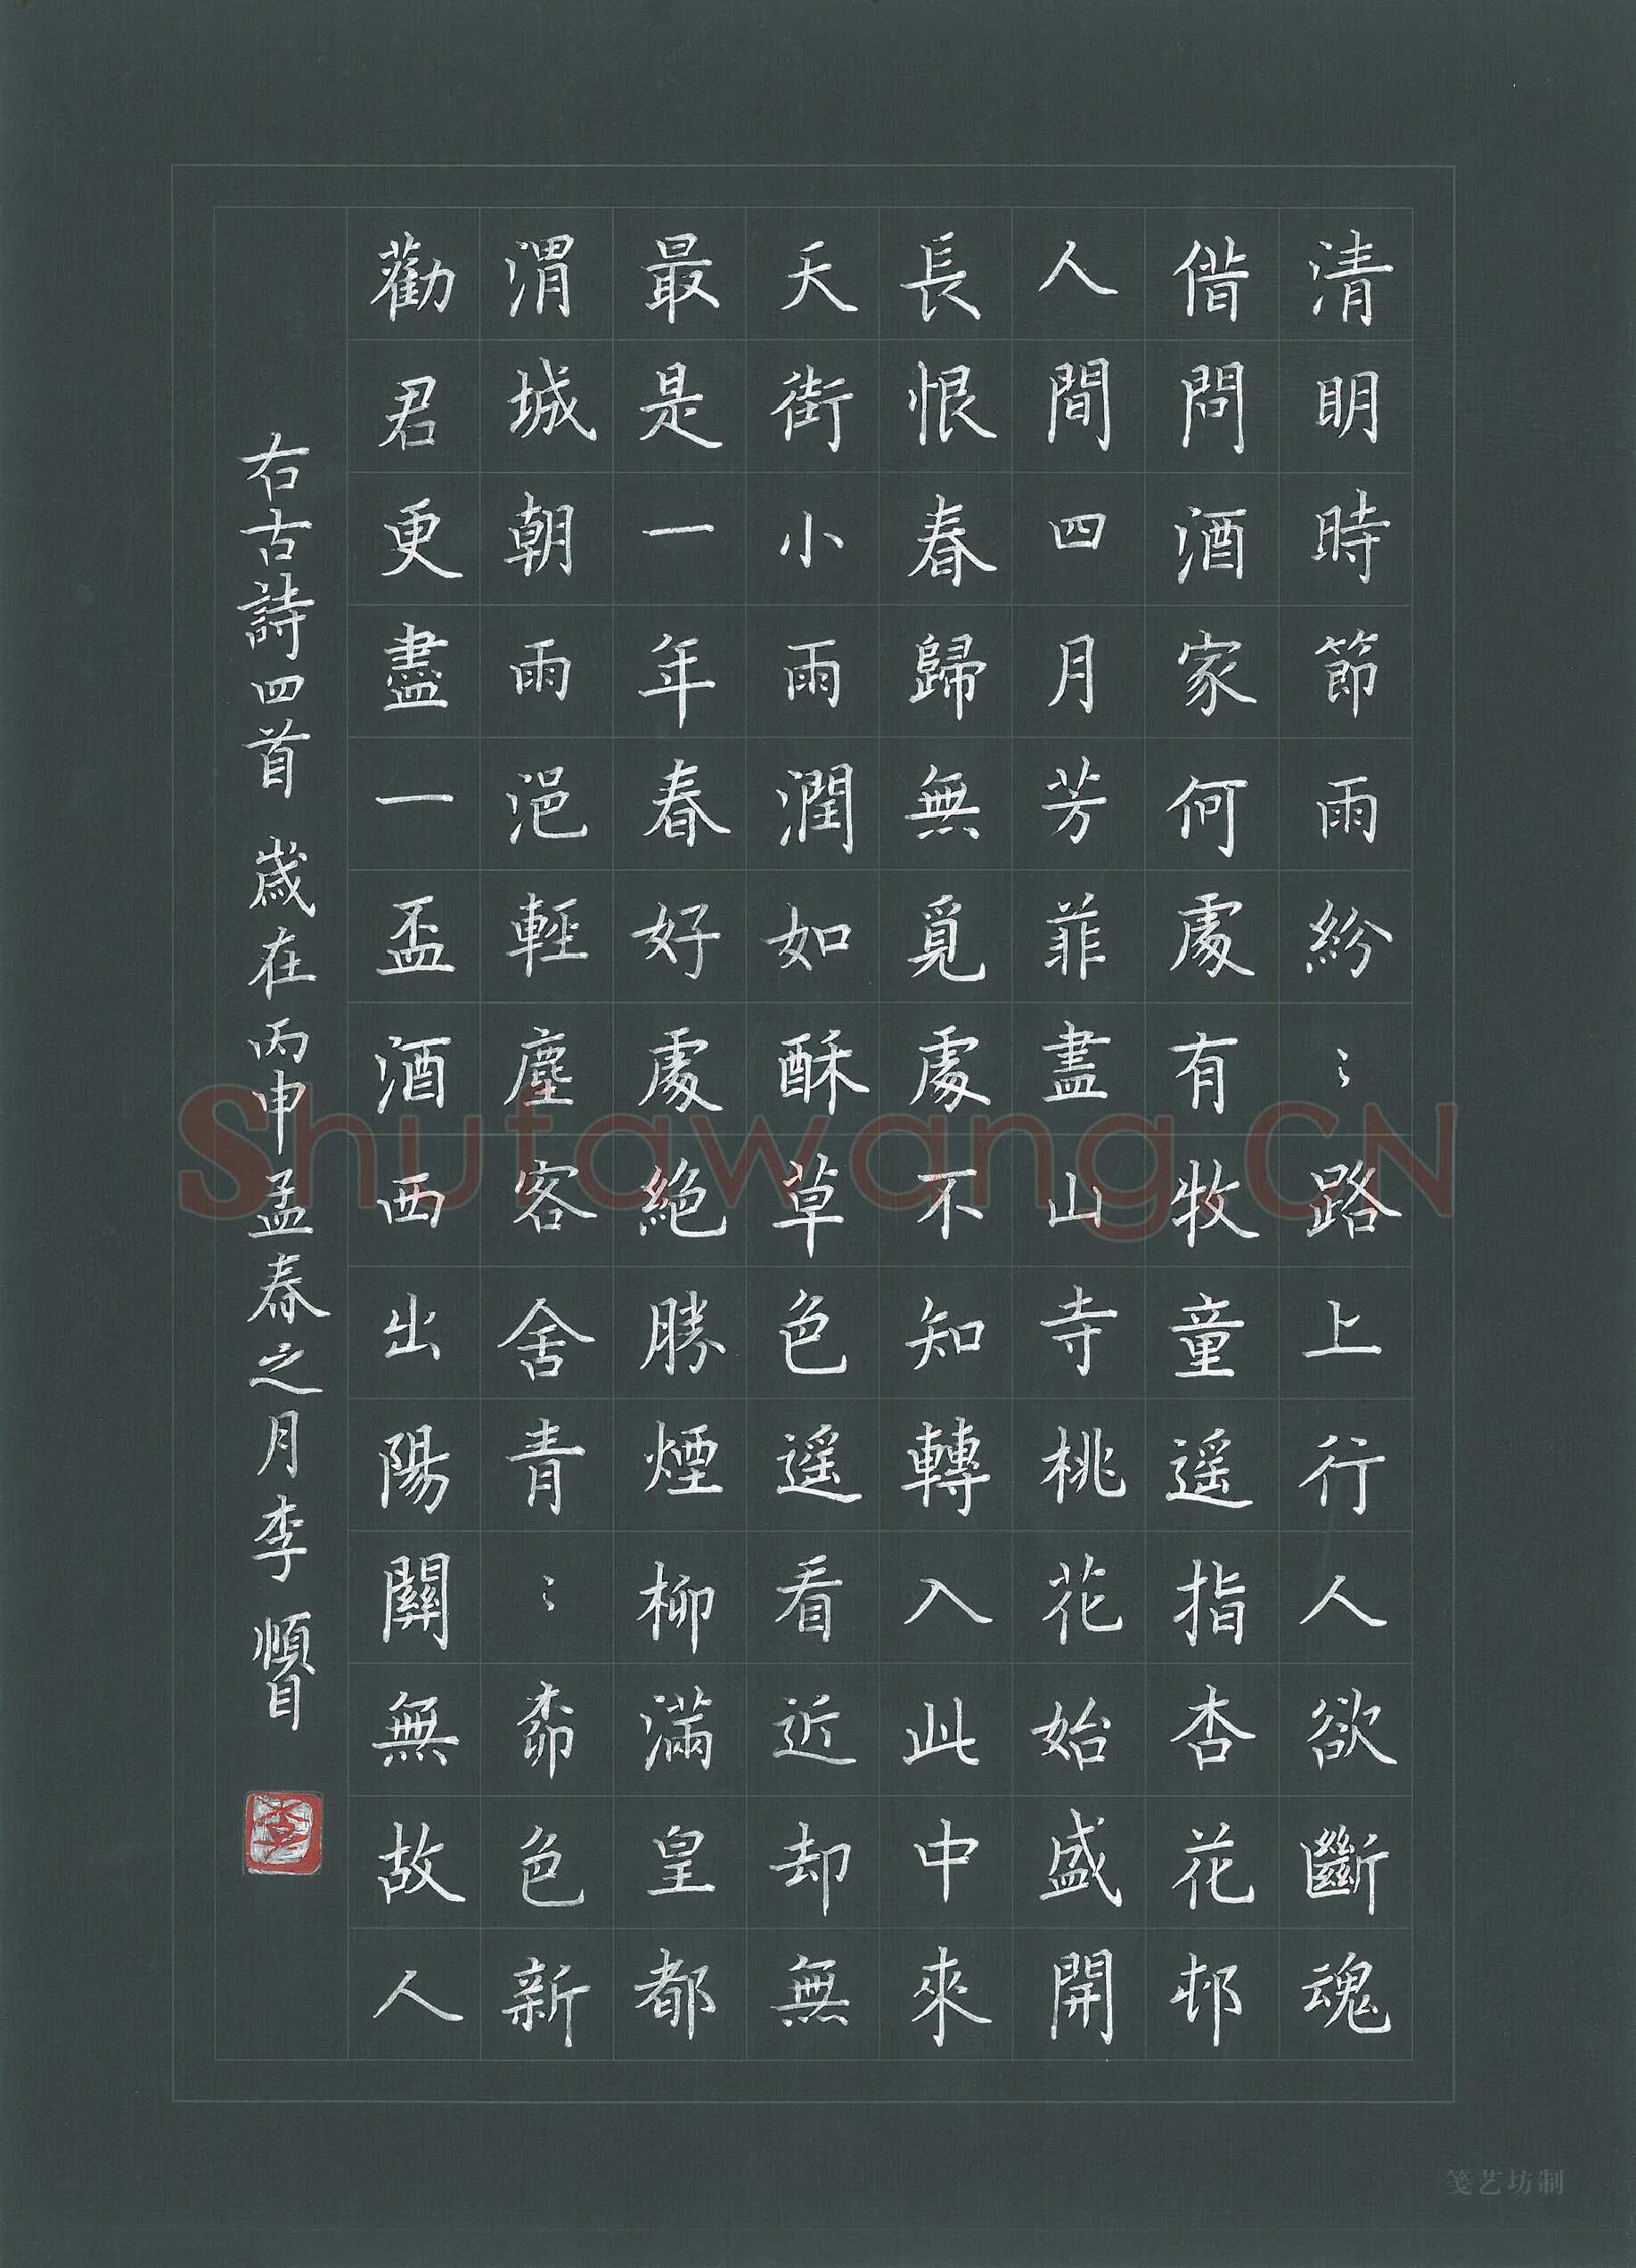 清明時節雨紛〻路上行人欲斷魂
借問酒家何處有牧童遥指杏花邨
人間四月芳菲盡山寺桃花始盛開
長恨春歸無覓處不知轉入此中來
天街小雨潤如酥草色遥看近却無
最是一年春好處絕勝煙柳滿皇都
渭城朝雨浥輕塵客舍青〻桺色新
勸君更盡一盃酒西出陽關無故人
右古詩四首 歲在丙申孟春之月李
Shufawang.CN
笺艺坊制